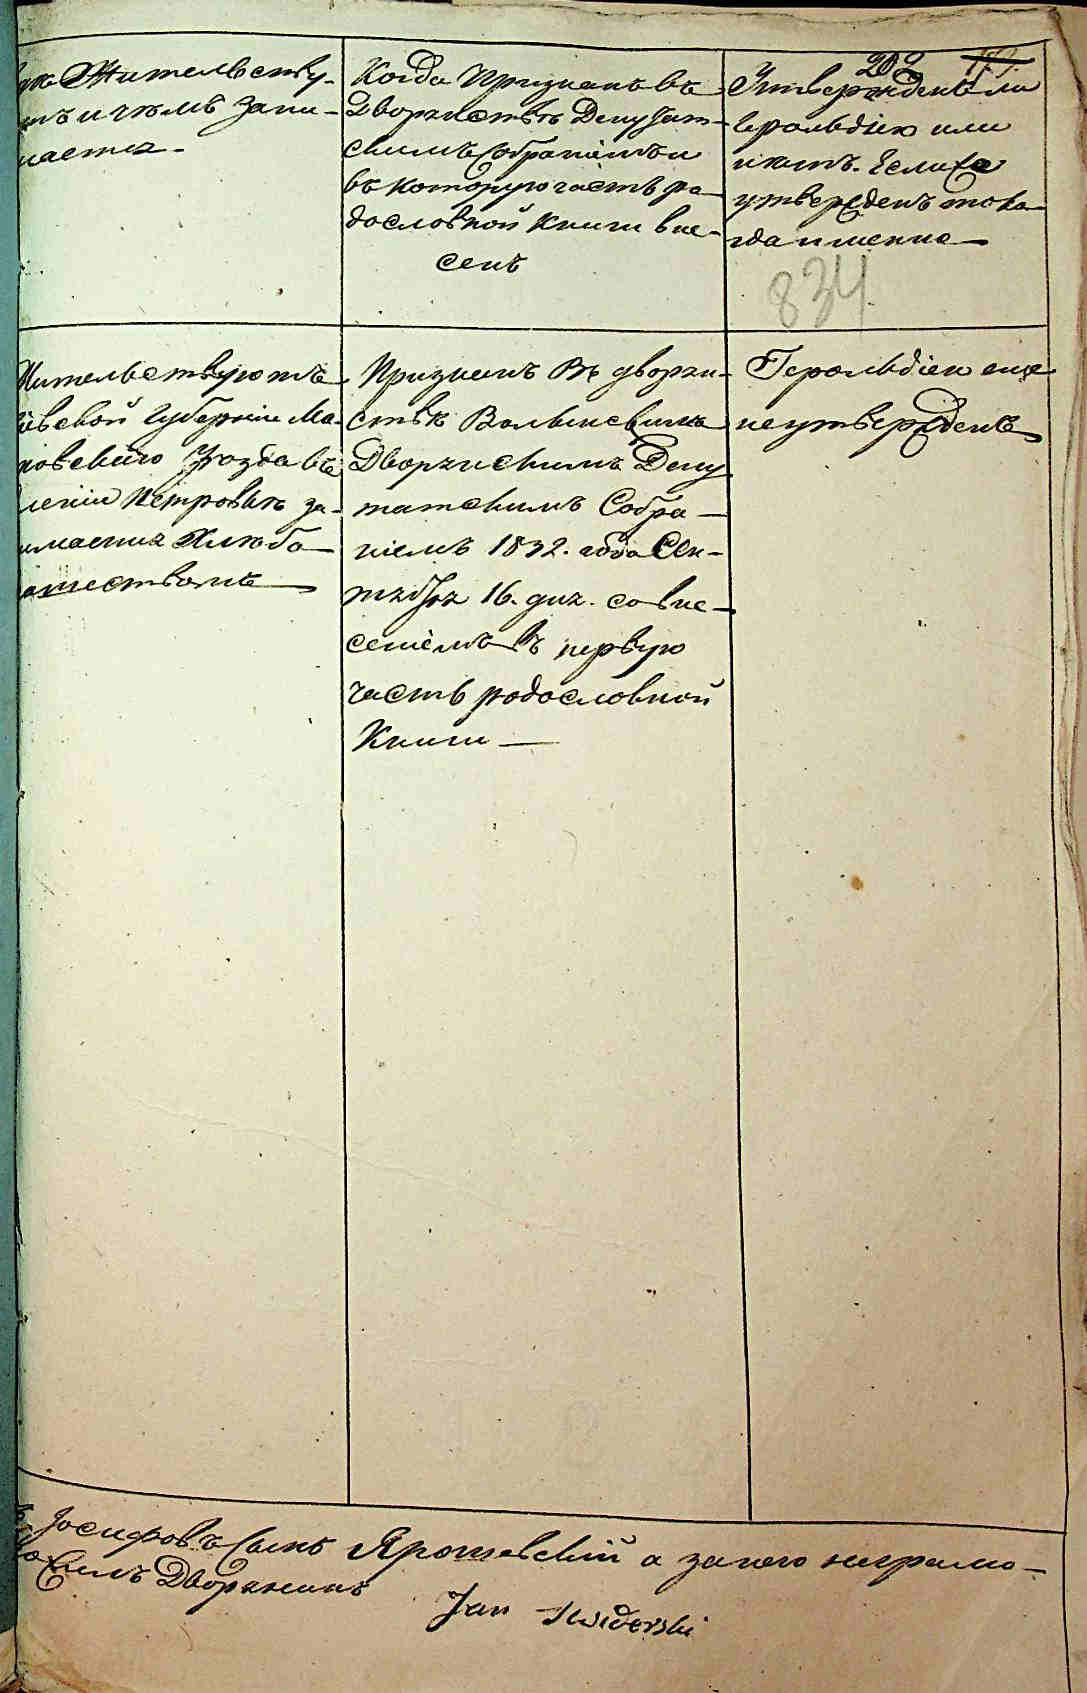 209 179.
Жительству-
тъ и чемъ зани-
мается.
Когда Признанъ въ
Дворянствѣ Депутат-
скимъ Собраніемъ и
въ которую часть ро-
дословной Книги вне-
сенъ
Утвержденъ ли
Герольдіею или
нѣтъ. Если
утвержденъ то ко-
гда именно
834
Жительствуютъ
Кіевской Губерніи
Уѣзда въ
имѣніи Петровкѣ за-
нимается Хлѣбо-
пашествомъ
Признанъ Въ дворян-
ствѣ Волынскимъ
Дворянскимъ Депу
татскимъ Собра-
ніемъ 1832. года Сен-
тября 16. дня. со вне-
сеніемъ въ первую
часть родословной
Книги
Герольдіею еще
неутвержденъ
Іосифовъ Сынъ Ярошевскій а за него неграмо-
Дворянинъ
Jan Swiderski